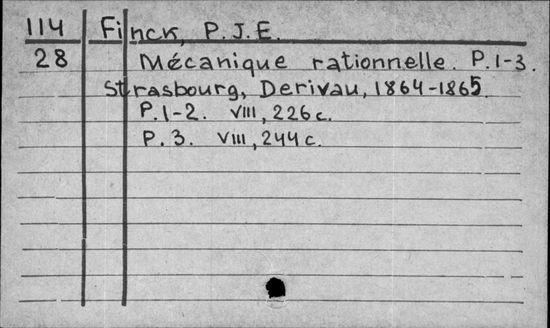 114 Finck, P.J.E.
28 Mécanique rationnelle. P.1-3.
Strasbourg, Derivau, 1864-1865.
P.1-2. VIII, 226 c.
P.3. VIII, 244 c.